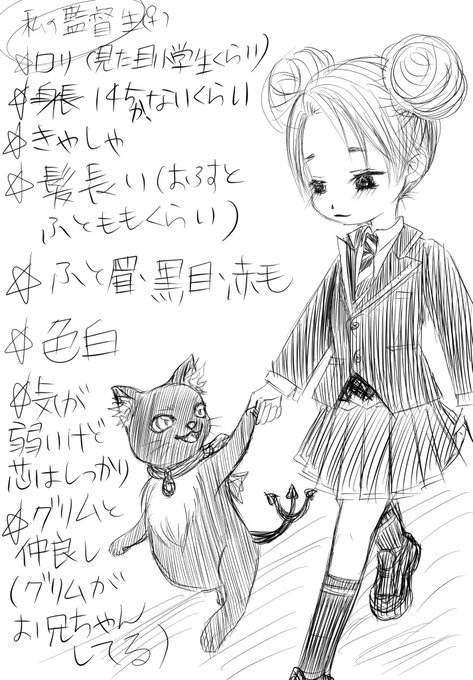 私の監督生(♀)
☆ロリ(見た目小学生くらい)
☆身長 145ないくらい
☆きゃしゃ
☆髪長い(おろすと
ふとももくらい)
☆ふと眉、黒目、赤毛
☆色白
☆気が
弱いけど
芯はしっかり
☆グリムと
仲良し
(グリムが
お兄ちゃん
してる)